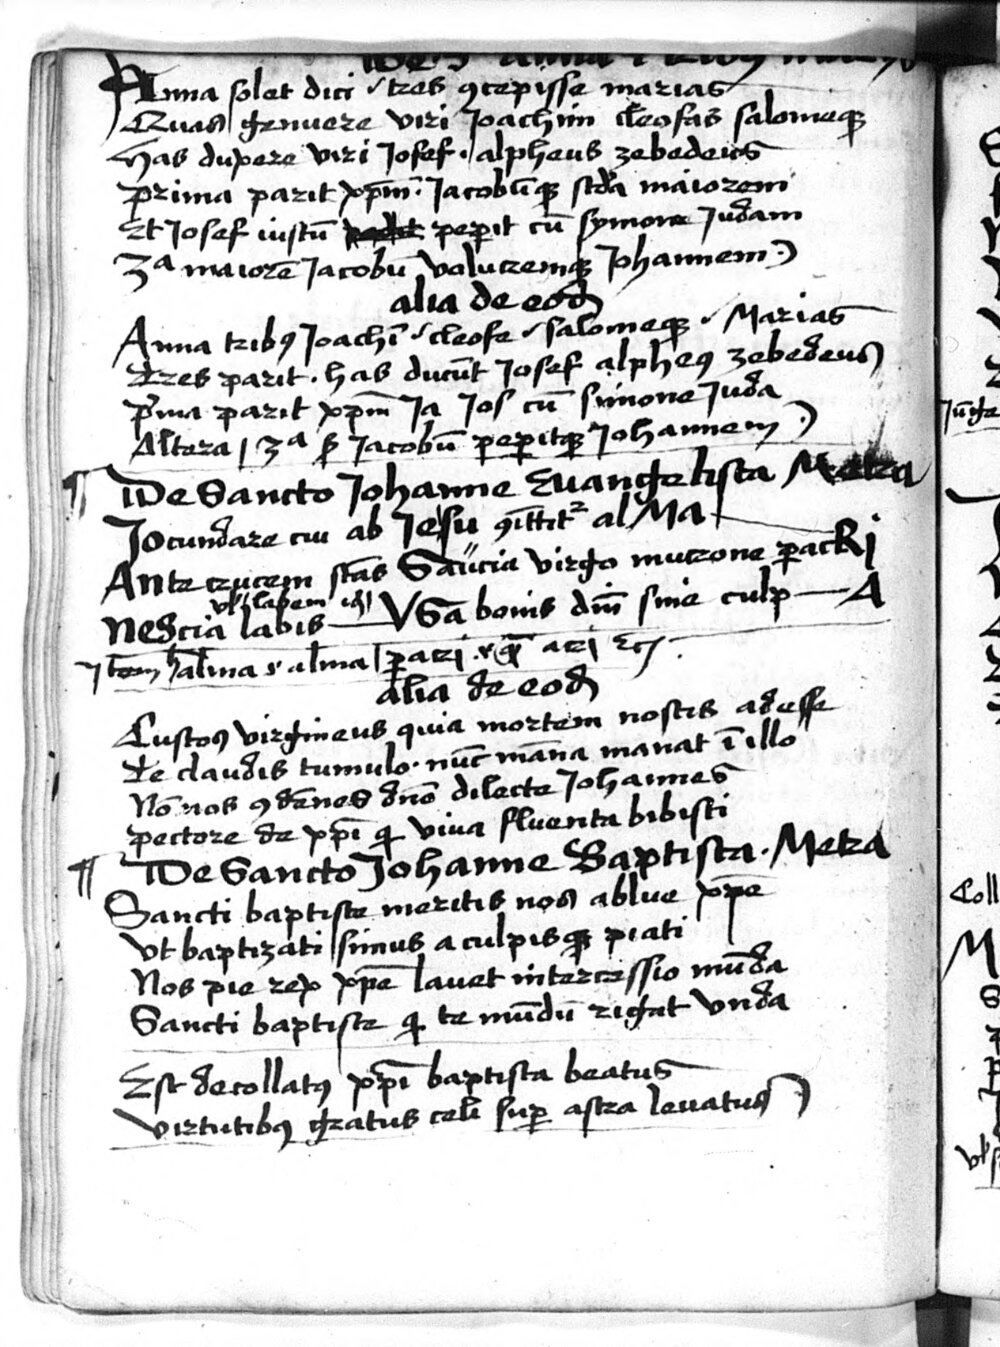 De S anna
Anna solet dici tres ꝯcepisse marias
Quas genuere viri Joachim cleofas salomeqꝫ
Has duxere viri Josef · alpheus zebedeus
prima parit xp̄m · Jacobūqꝫ scd̄a maiorem
Et Josef iustū peperit cū symone Judam
3ᵃ maiorē Jacobū volucremqꝫ Johannem
alia de eod
Anna tribꝰ Joachī cleofe salomeqꝫ Marias
Tres parit · has ducūt Josef alpheꝰ zebedeus
pͥma parit xp̄m Ja Jos cū simone Juda
Altera / 3ᵃ Jacobū peperitqꝫ Johannem
¶ De Sancto Johanne Evangelista Metra
Jocundare cui ab Jesu ꝯmittitᷣ alMa
Ante crucem stās Saucia virgo mucrone pacRi
vl labem
Nescia labis VSa bonis dm̄ sine culp A
Item alma alma pari ari
alia de eod
Custos virgineus quia mortem nostis adesse
de claudis tumulo · nūc māna manat ī illo
Nō nos ꝯdēnes dn̄o dilecte Johannes
pectore de xp̄i qͥ viva fluenta bibisti
¶ De Sancto Johanne Baptista · Metra
Sancti baptiste meritis nos ablue xp̄e
Vt baptizati simus a culpisqꝫ piati
Nos pie rex xp̄e lavet intercessio mūda
Sancti baptiste qͥ te mūdū rigat vnda
Est decollatꝰ xp̄i baptista beatus
virtutibꝰ gratus celi suꝑ astra levatus
Coll